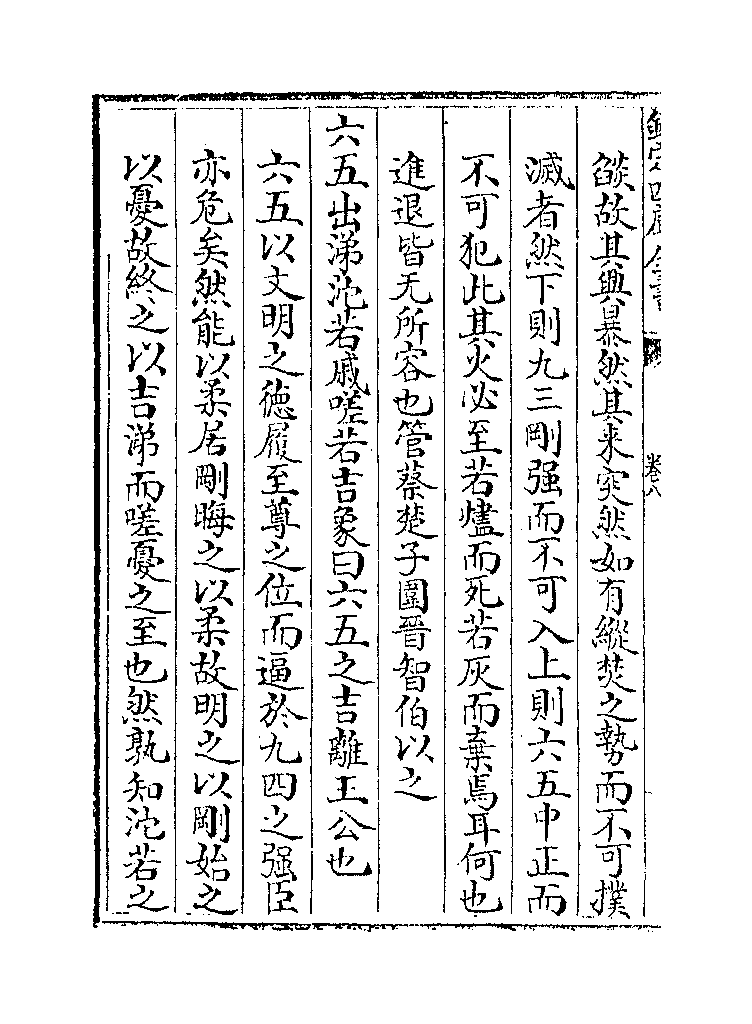 欽定四庫全書
卷八
燄故其興暴然其来突然如有縱焚之勢而不可撲
滅者然下則九三剛强而不可入上則六五中正而
不可犯此其火必至若燼而死若灰而棄焉耳何也
進退皆无所容也管蔡楚子圍晉智伯以之
六五出涕沱若戚嗟若吉象曰六五之吉離王公也
六五以文明之徳履至尊之位而逼於九四之强臣
亦危矣然能以柔居剛晦之以柔故明之以剛始之
以憂故終之以吉涕而嗟憂之至也然孰知沱若之